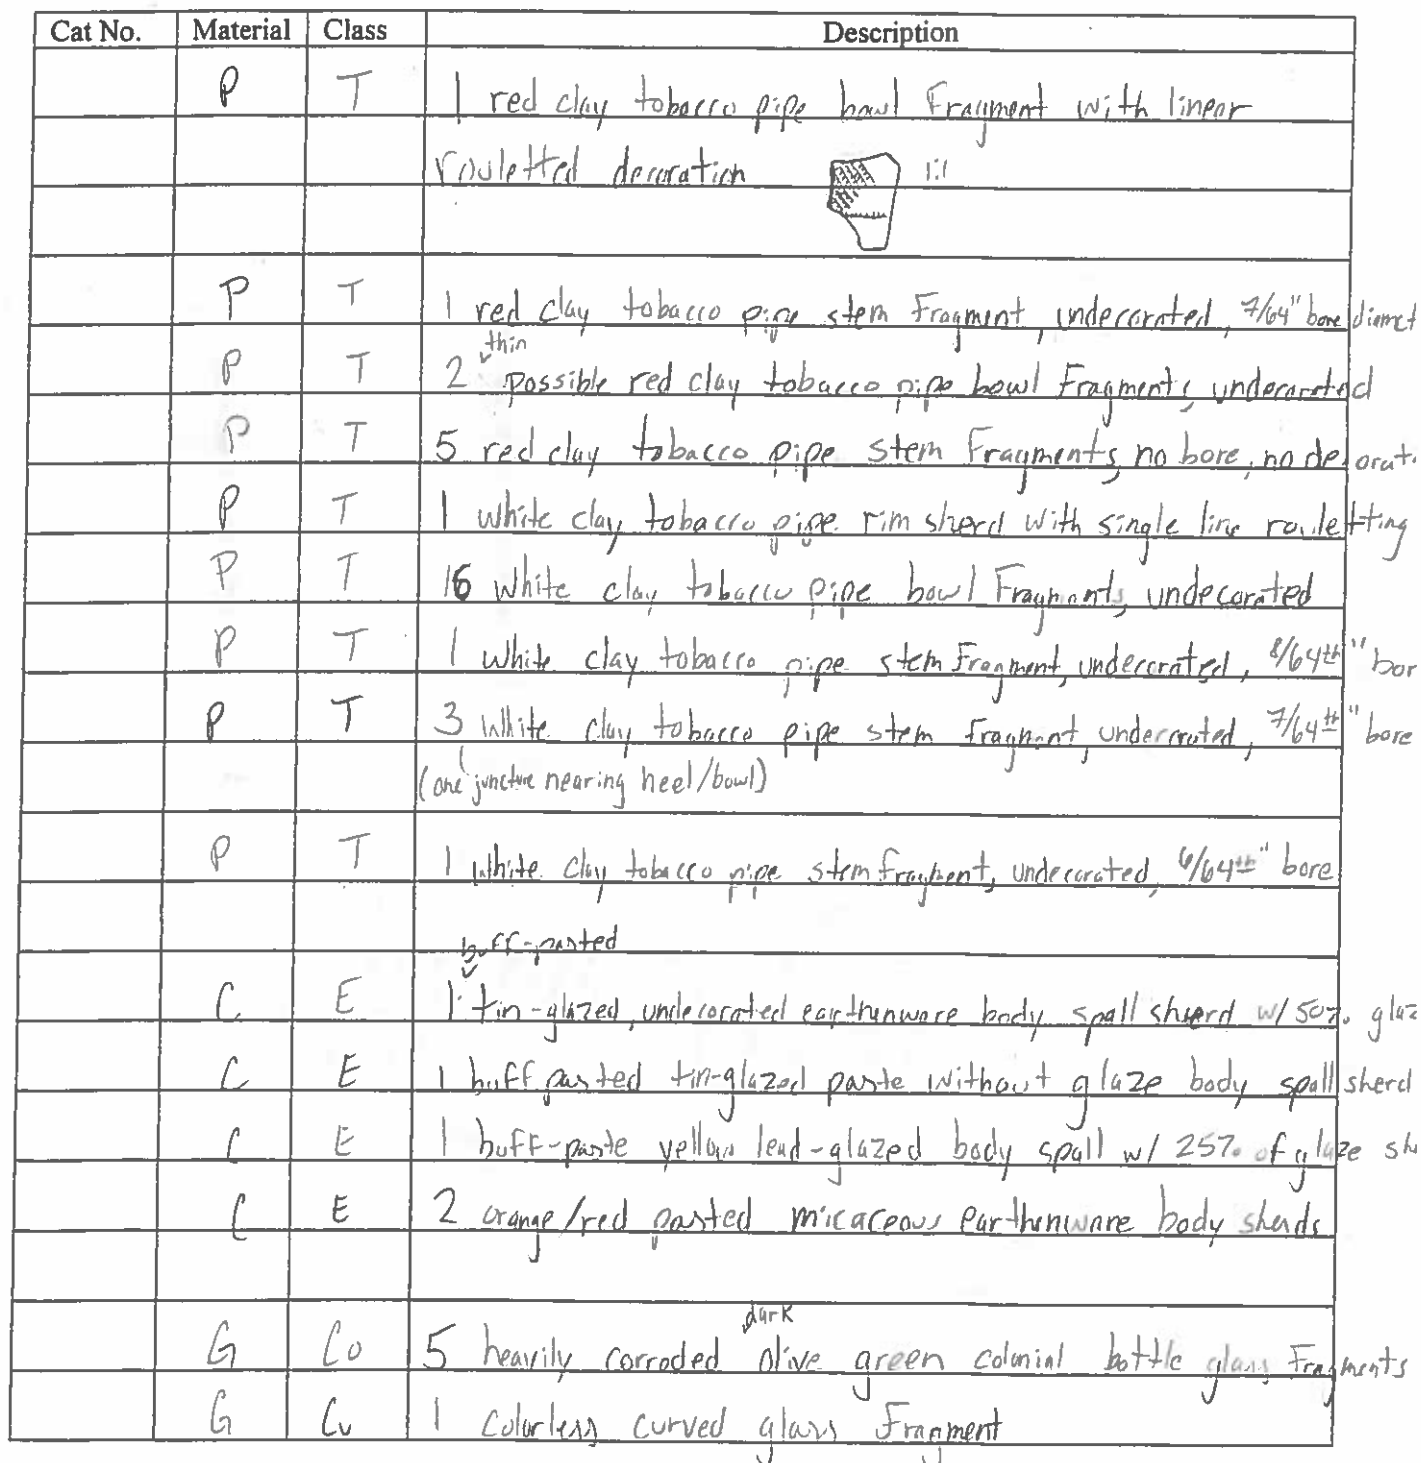 Cat No. Material Class Description
P T 1 red clay tobacco pipe bowl Fragment with linear
rouletted decoration 1:1
P T 1 red clay tobacco pipe stem Fragment, undecorated, 7/64" bore diamet
thin
P T 2 possible red clay tobacco pipe bowl Fragments, undecorated
P T 5 red clay tobacco pipe stem Fragments, no bore, no decorati
P T 1 White clay tobacco pipe rim sherd with single line rouletting
P T 16 white clay tobacco pipe bowl Fragments, undecorated
P T 1 White clay tobacco pipe stem Fragment, undecorated, 8/64th" bor
P T 3 White clay tobacco pipe stem fragment, undecorated, 7/64th" bore
(one juncture nearing heel/bowl)
P T 1 White clay tobacco pipe stem fragment, undecorated, 6/64th" bore
buff-pasted
C E 1 tin-glazed, undecorated earthenware body spall sherd w/ 50% glaz
C E 1 buff pasted tin-glazed paste without glaze body spall sherd
C E 1 buff-paste yellow lead-glazed body spall w/ 25% of glaze she
C E 2 orange/red pasted micaceous earthenware body sherds
dark
G Co 5 heavily corroded olive green colonial bottle glass Fragments
G Cu 1 Colorless curved glass Fragment